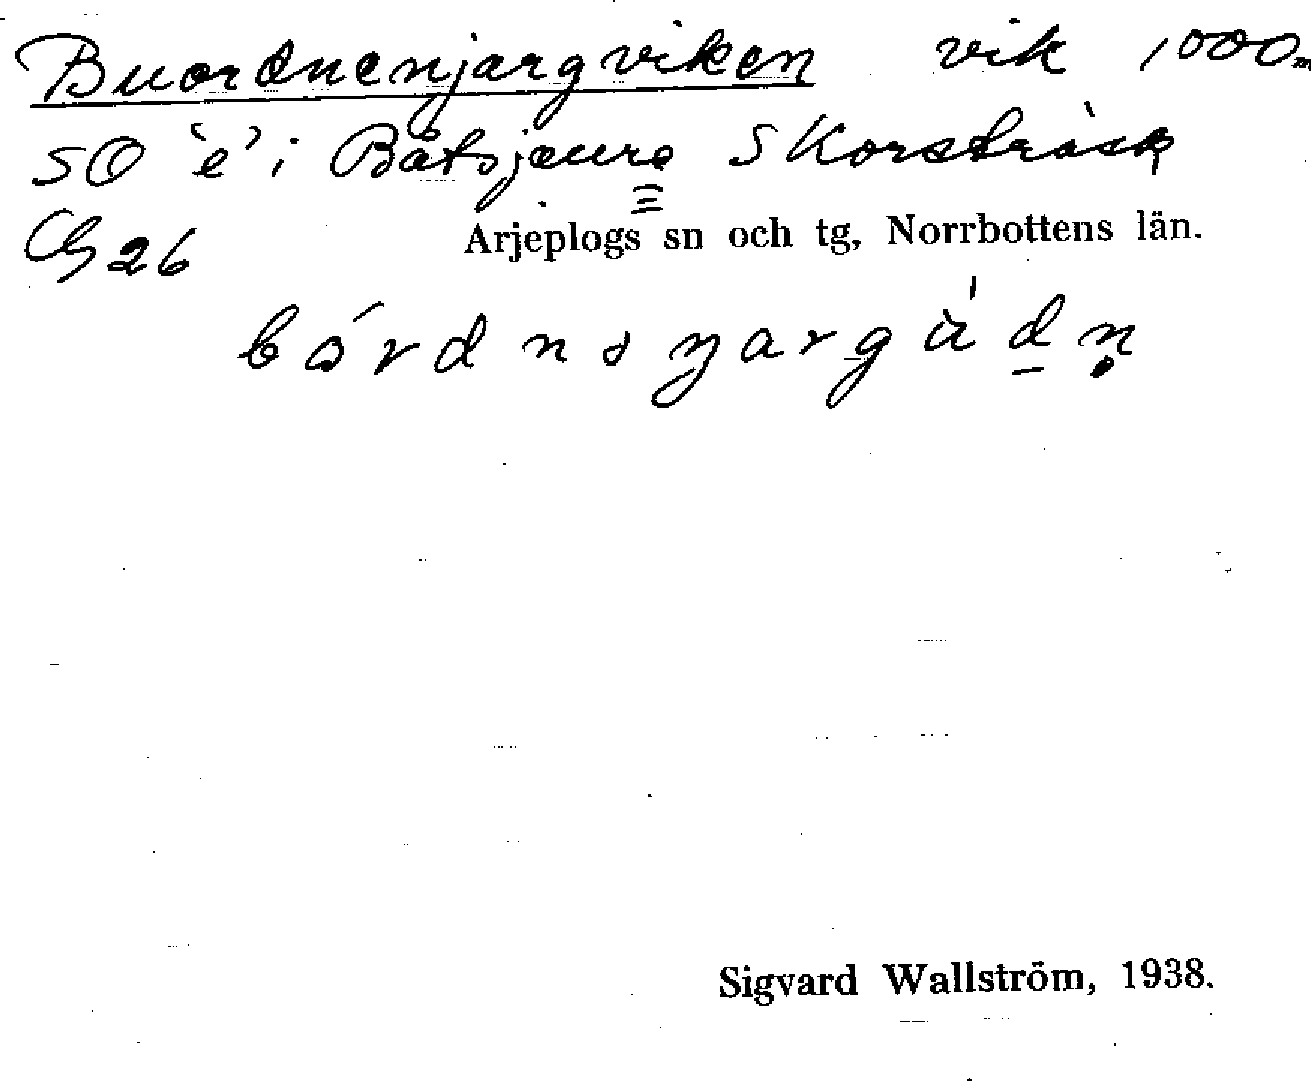 Buordnenjargviken vik 1000m
SO 'e' i Båtsjaure S Korsträsk
26
Arjeplogs sn och tg, Norrbottens län.
Sigvard Wallström, 1938.